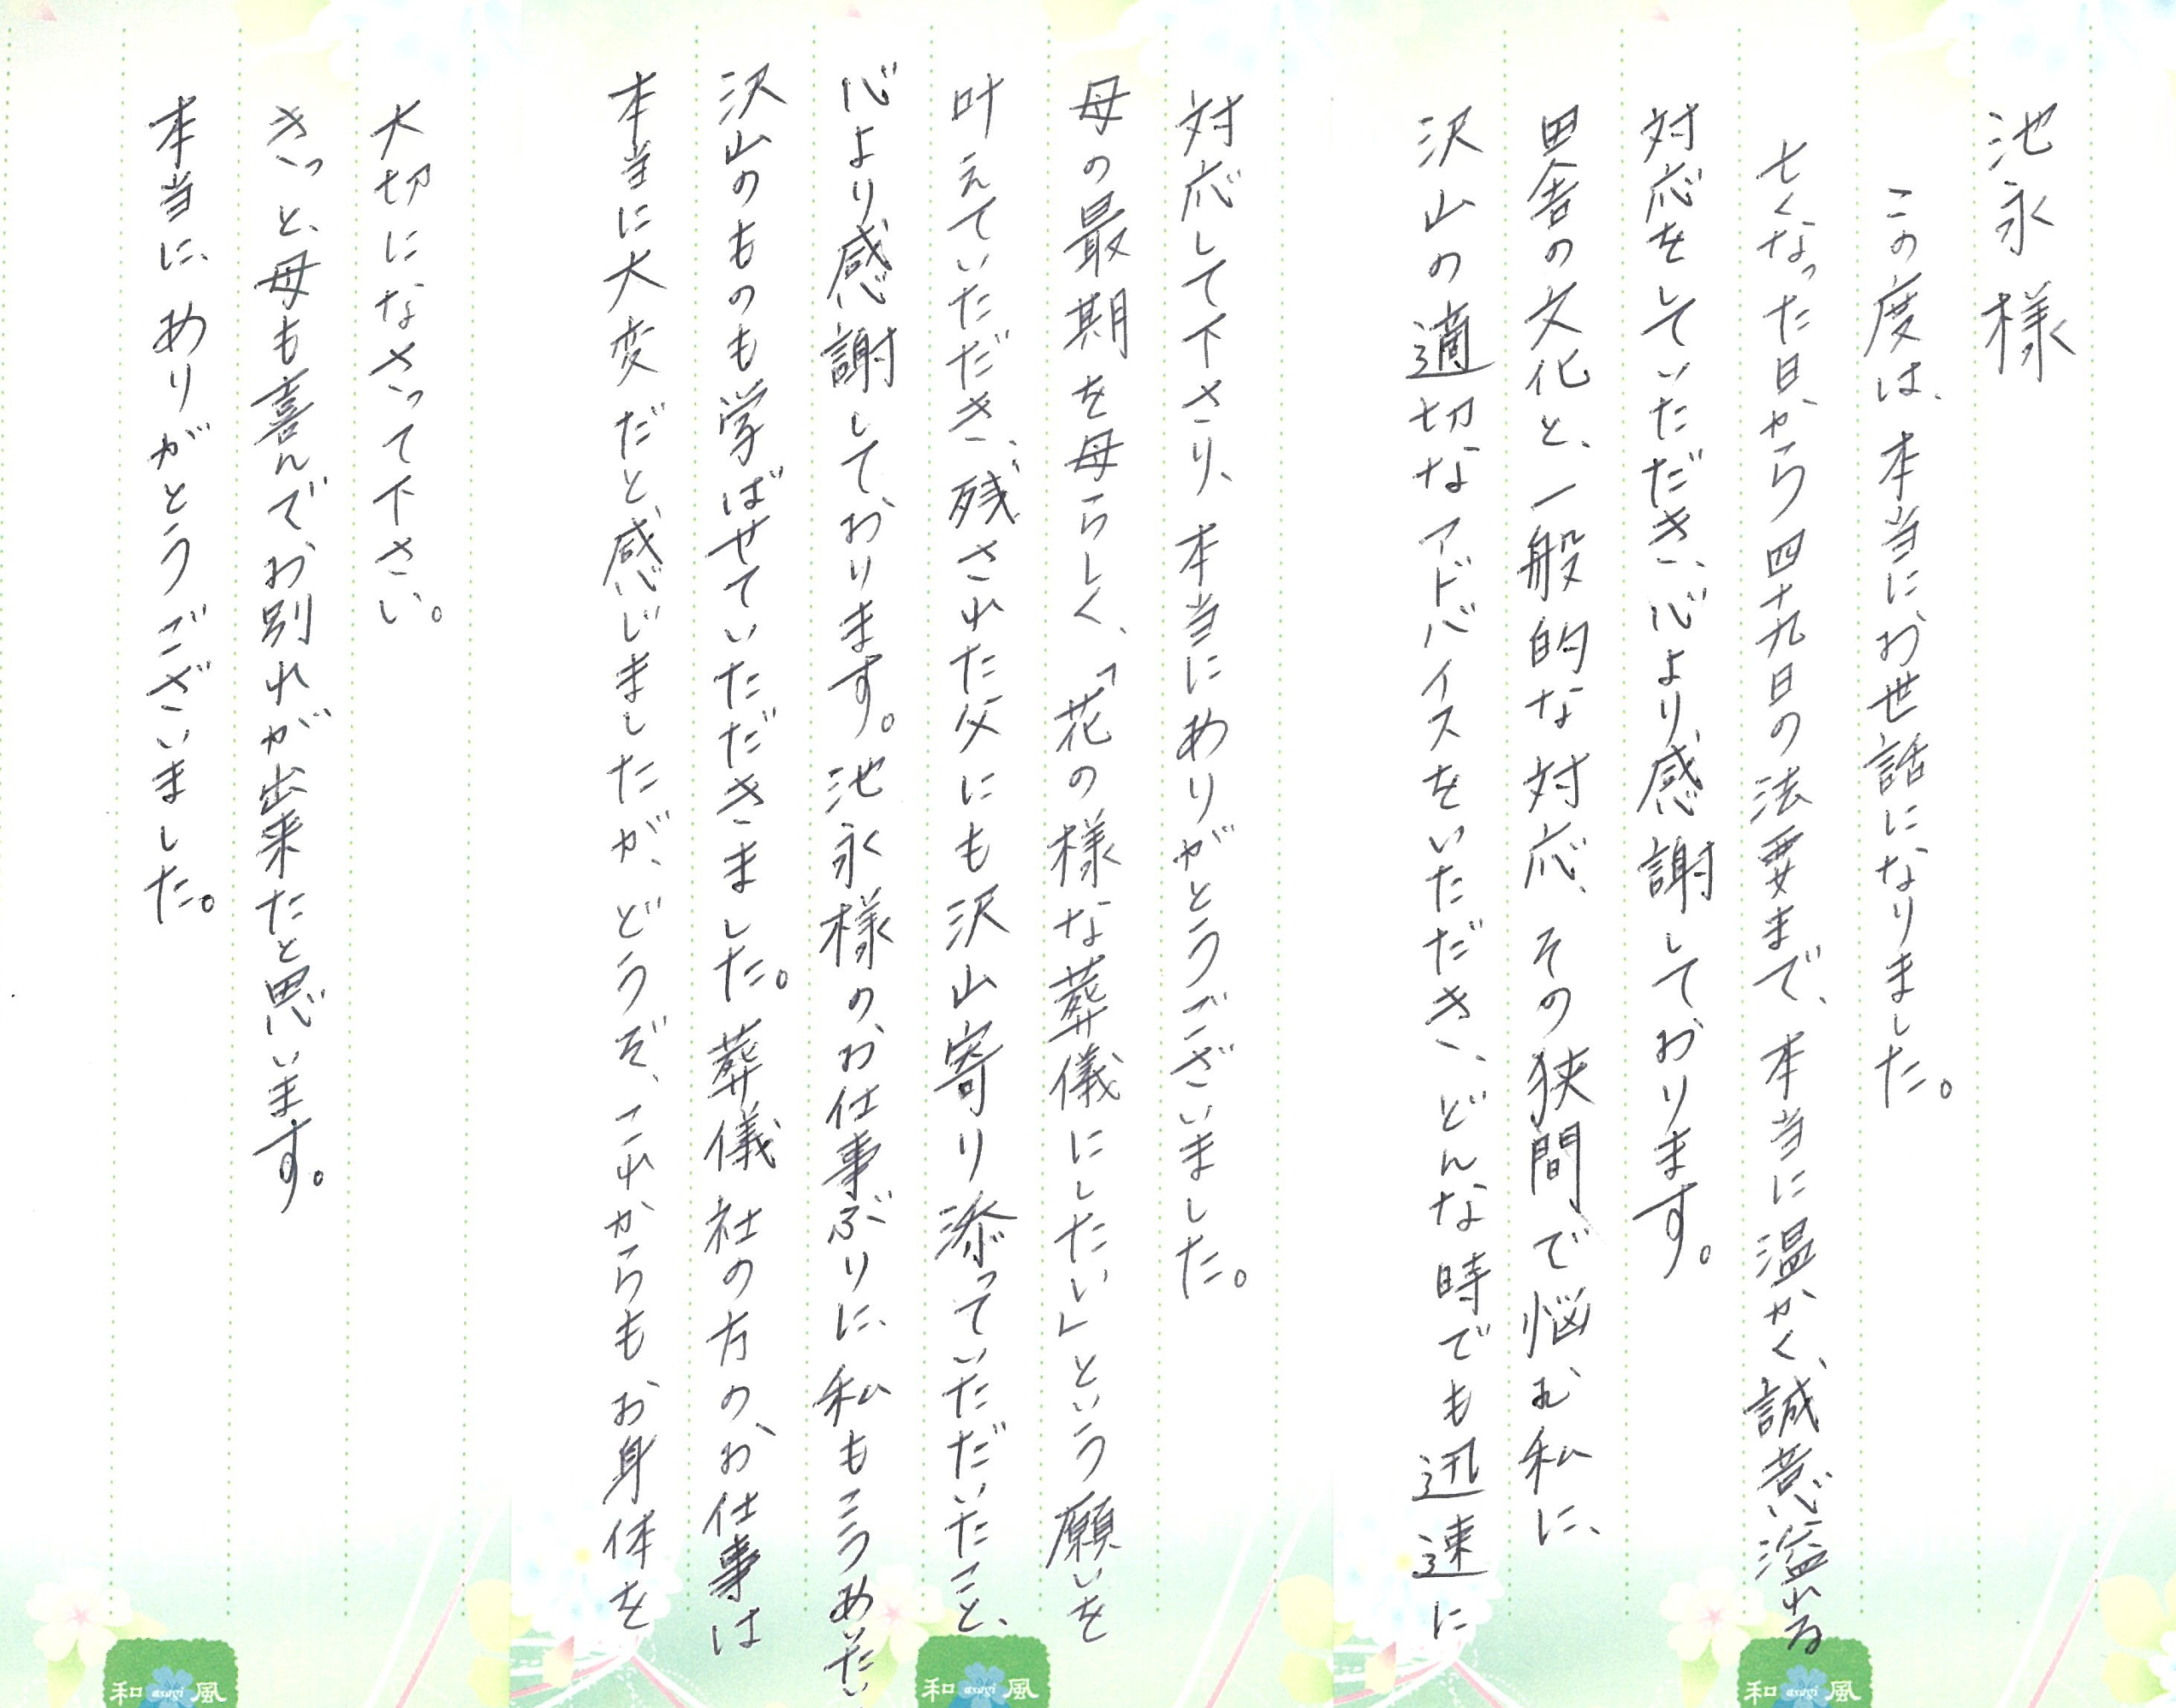 池永様
この度は、本当にお世話になりました。
亡くなった日から四十九日の法要まで、本当に温かく、誠意溢れる
対応をしていただき、心より感謝しております。
田舎の文化と、一般的な対応、その狭間で悩む私に、
沢山の適切なアドバイスをいただき、どんな時でも迅速に
対応して下さり、本当にありがとうございました。
母の最期を母らしく、「花の様な葬儀にしたい」という願いを
叶えていただき、残された父にも沢山寄り添っていただいたこと、
心より感謝しております。池永様の、お仕事ぶりに、私もこうありたい
沢山のものも学ばせていただきました。葬儀社の方の、お仕事は
本当に大変だと感じましたが、どうぞ、これからもお身体を
大切になさって下さい。
きっと、母も喜んでお別れが出来たと思います。
本当に、ありがとうございました。
和 asagi 風
和 asagi 風
和 asagi 風